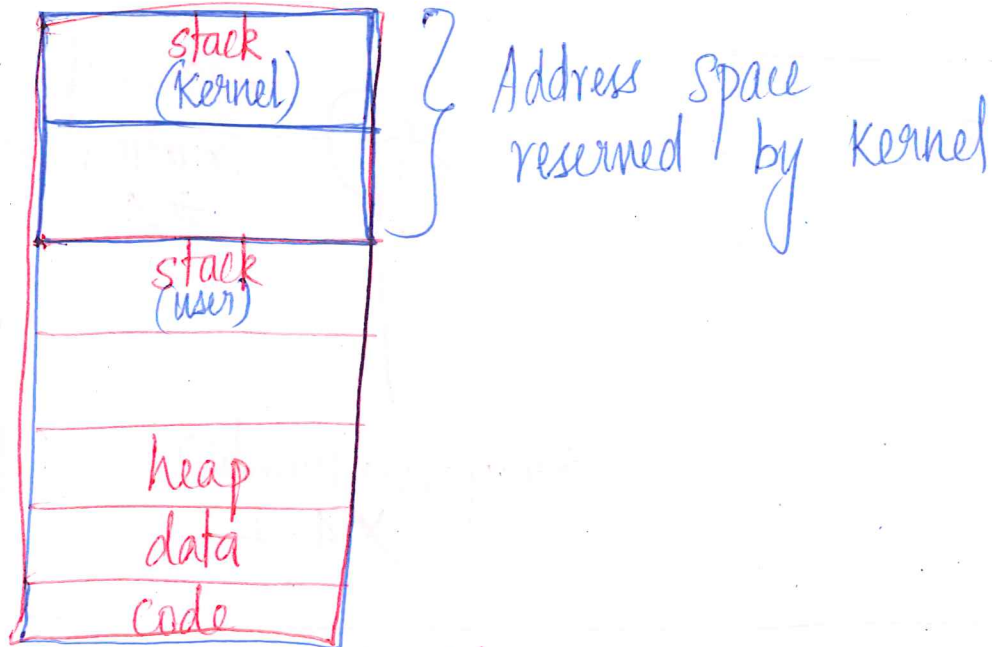 stack
(Kernel)
Address space
reserved by Kernel
stack
(user)
heap
data
code